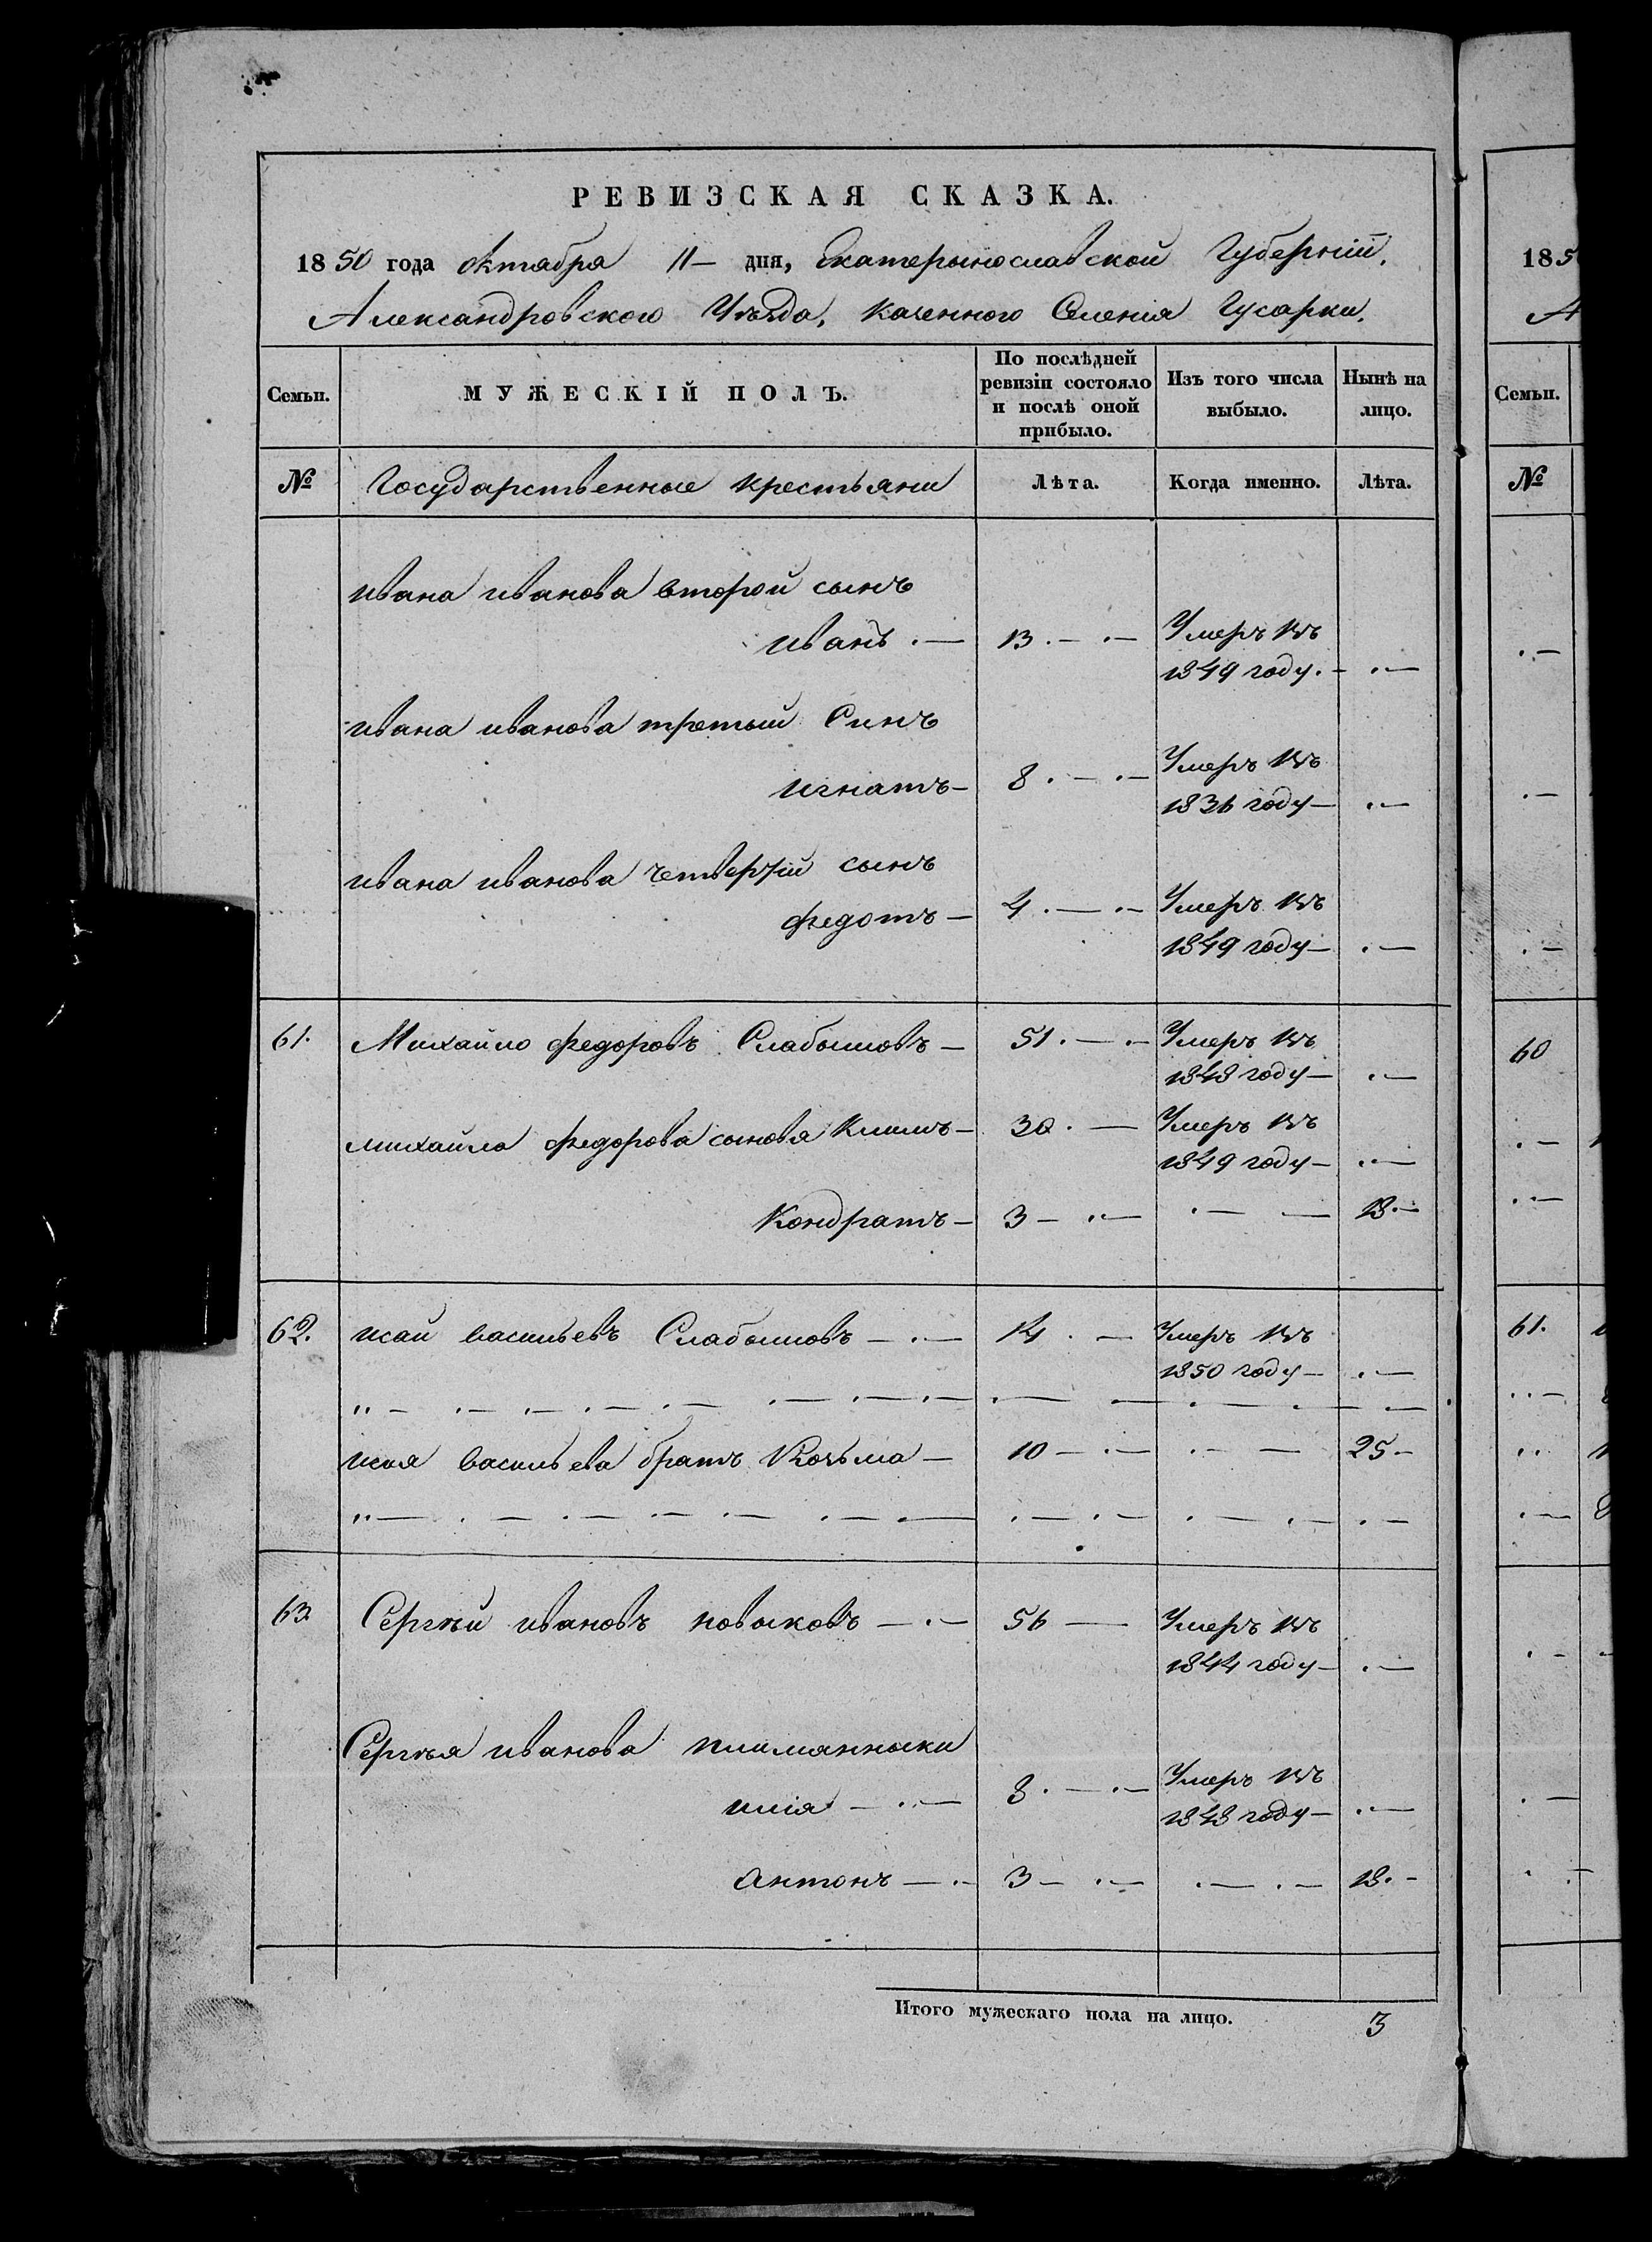 РЕВИЗСКАЯ СКАЗКА.
1850 года октабря 11 — дня, Екатерынославской Губерніи,
Александровского Уѣзда, казенного Селенія Гусарки.
Семьи. МУЖЕСКІЙ ПОЛЪ. По послѣдней ревизіи состояло и послѣ оной прибыло. Изъ того числа выбыло. Нынѣ на лицо.
№ Государственные крестьяни Лѣта. Когда именно. Лѣта.
Ивана иванова второй сынъ
иванъ 13 Умеръ въ
1849 году
ивана иванова третый Синъ
игнатъ 8 Умеръ въ
1836 году
ивана иванова четвертій сынъ
федотъ 4 Умеръ въ
1849 году
61. Михайло федоровъ Слабышовъ 51 Умеръ въ
1848 году
михайла федорова сыновя Климъ 30 Умеръ въ
1849 году
Кондратъ 3 18
62. исай васильевъ Слабышовъ 14 Умеръ въ
1850 году
исая васильева братъ Козьма 10 25
63. Сергѣй ивановъ новыковъ 56 Умеръ въ
1844 году
Сергѣя иванова плимянныки
илія 8 Умеръ въ
1848 году
антонъ 3 18
Итого мужескаго пола на лицо. 3
185
А
Семьи.
№
60
61.